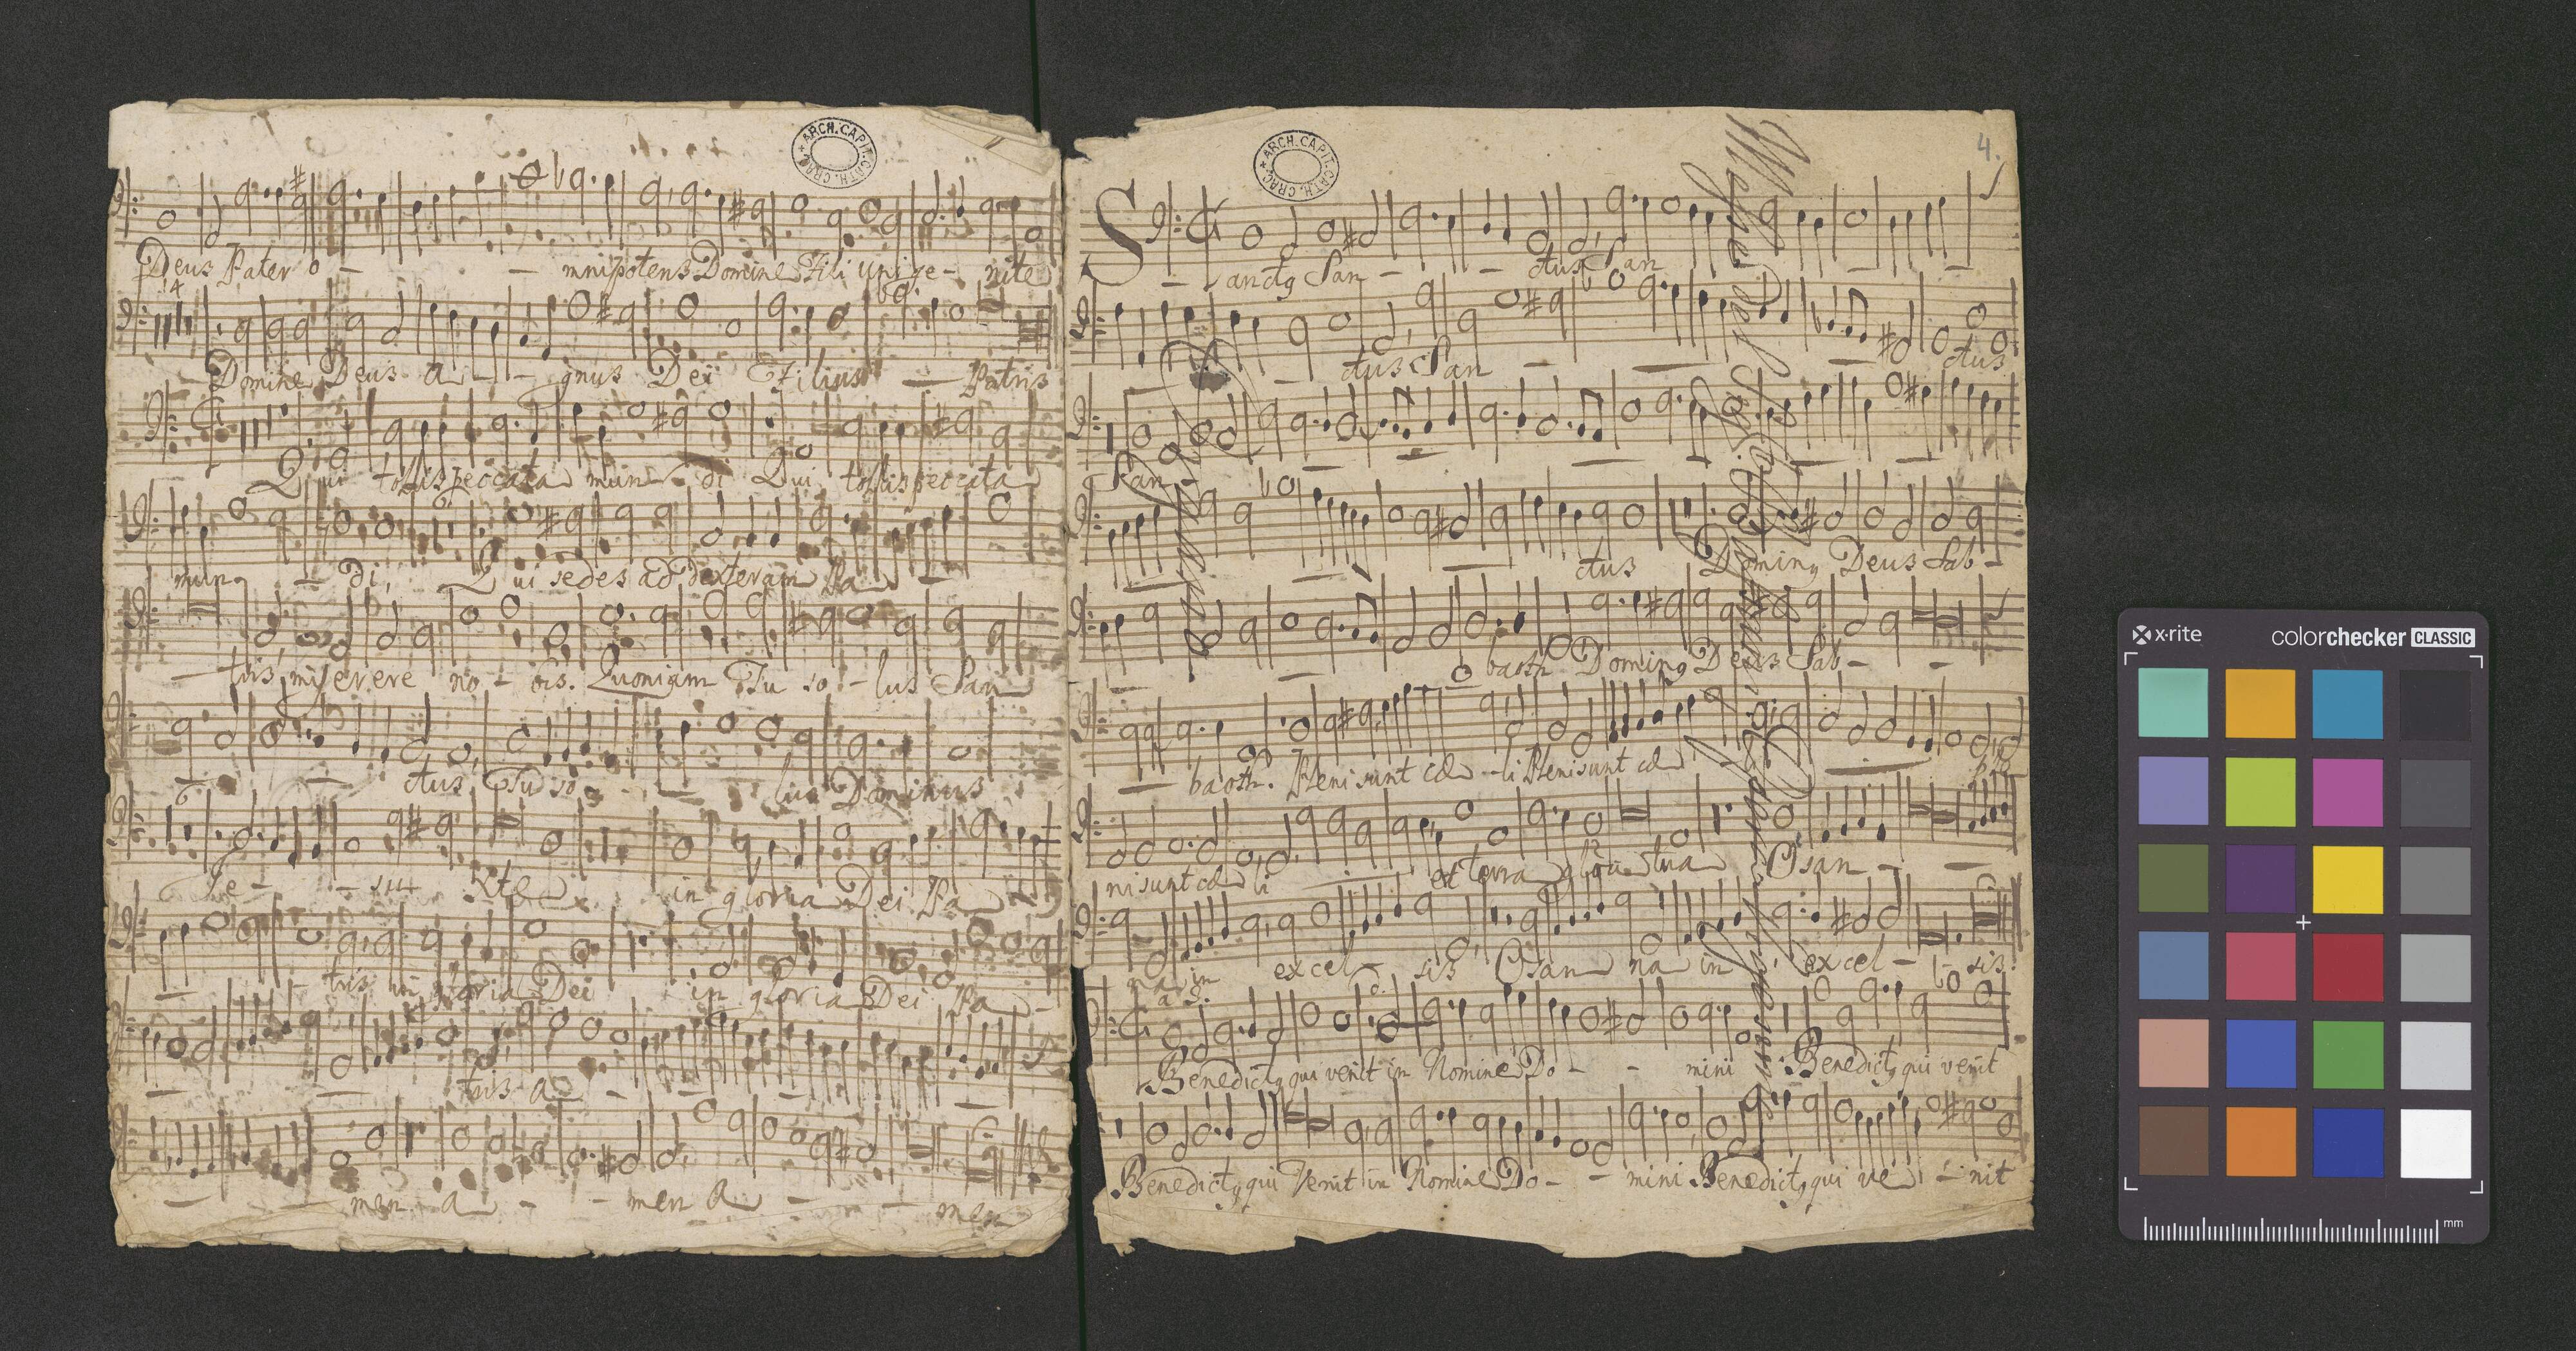 ARCH. CAPIT. CATH. CRAC.
Deus Pater o - - mnipotens Domine Fili unige - nite
14
Domine Deus a - - gnus Dei Filius - Patris
Qui tollis peccata mun - di Qui tollis peccata
mun - di, Qui sedes ad dexteram Pa -
- tris, miserere no - bis. Quoniam Tu so - lus San
- - ctus Tu so - - lus Dominus
Je - - su Xte in gloria Dei Pa
- - tris in gloria Dei in gloria Dei Pa -
- - tris a - - -
- - men a - - men a - - men
ARCH. CAPIT. CATH. CRAC.
4.
S - anctq San - - ctus San - -
- ctus San - - - ctus
San - - - - -
- - - ctus Dominq Deus Sab -
- - - baoth Dominq Deus Sab - -
- baoth. Pleni sunt cæ - li Pleni sunt cæ - ple
ni sunt cæ li - - et terra gloria tua Osan - -
na in excel - sis Osan na in excel - sis.
a 3.
Benedictq qui venit in Nomine Do - - mini Benedictq qui venit
Benedictq qui Venit in Nomine Do - - mini Benedictq qui ve - nit
x-rite
colorchecker CLASSIC
mm